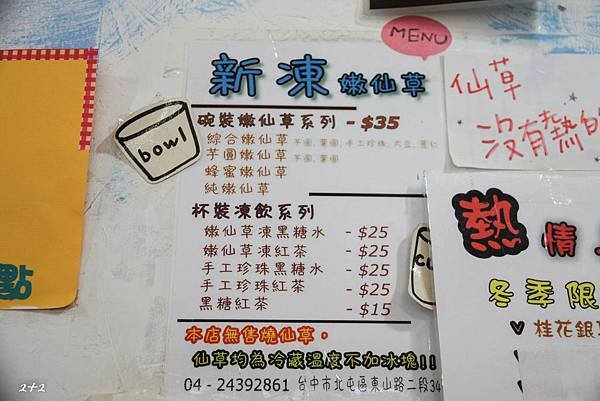 MENU
新凍 嫩仙草
碗裝嫩仙草系列 - $35
綜合嫩仙草 芋圓, 薯圓, 手工珍珠, 大豆, 薏仁
芋圓嫩仙草 芋圓, 薯圓
蜂蜜嫩仙草
純嫩仙草
bowl
杯裝凍飲系列
嫩仙草凍黑糖水 - $25
嫩仙草凍紅茶 - $25
手工珍珠黑糖水 - $25
手工珍珠紅茶 - $25
黑糖紅茶 - $15
本店無售燒仙草。
仙草均為冷藏溫度不加冰塊!!
04 - 24392861 台中市北屯區東山路二段34
仙草
沒有熱的
熱情
冬季限
桂花銀
點
cu
2+2